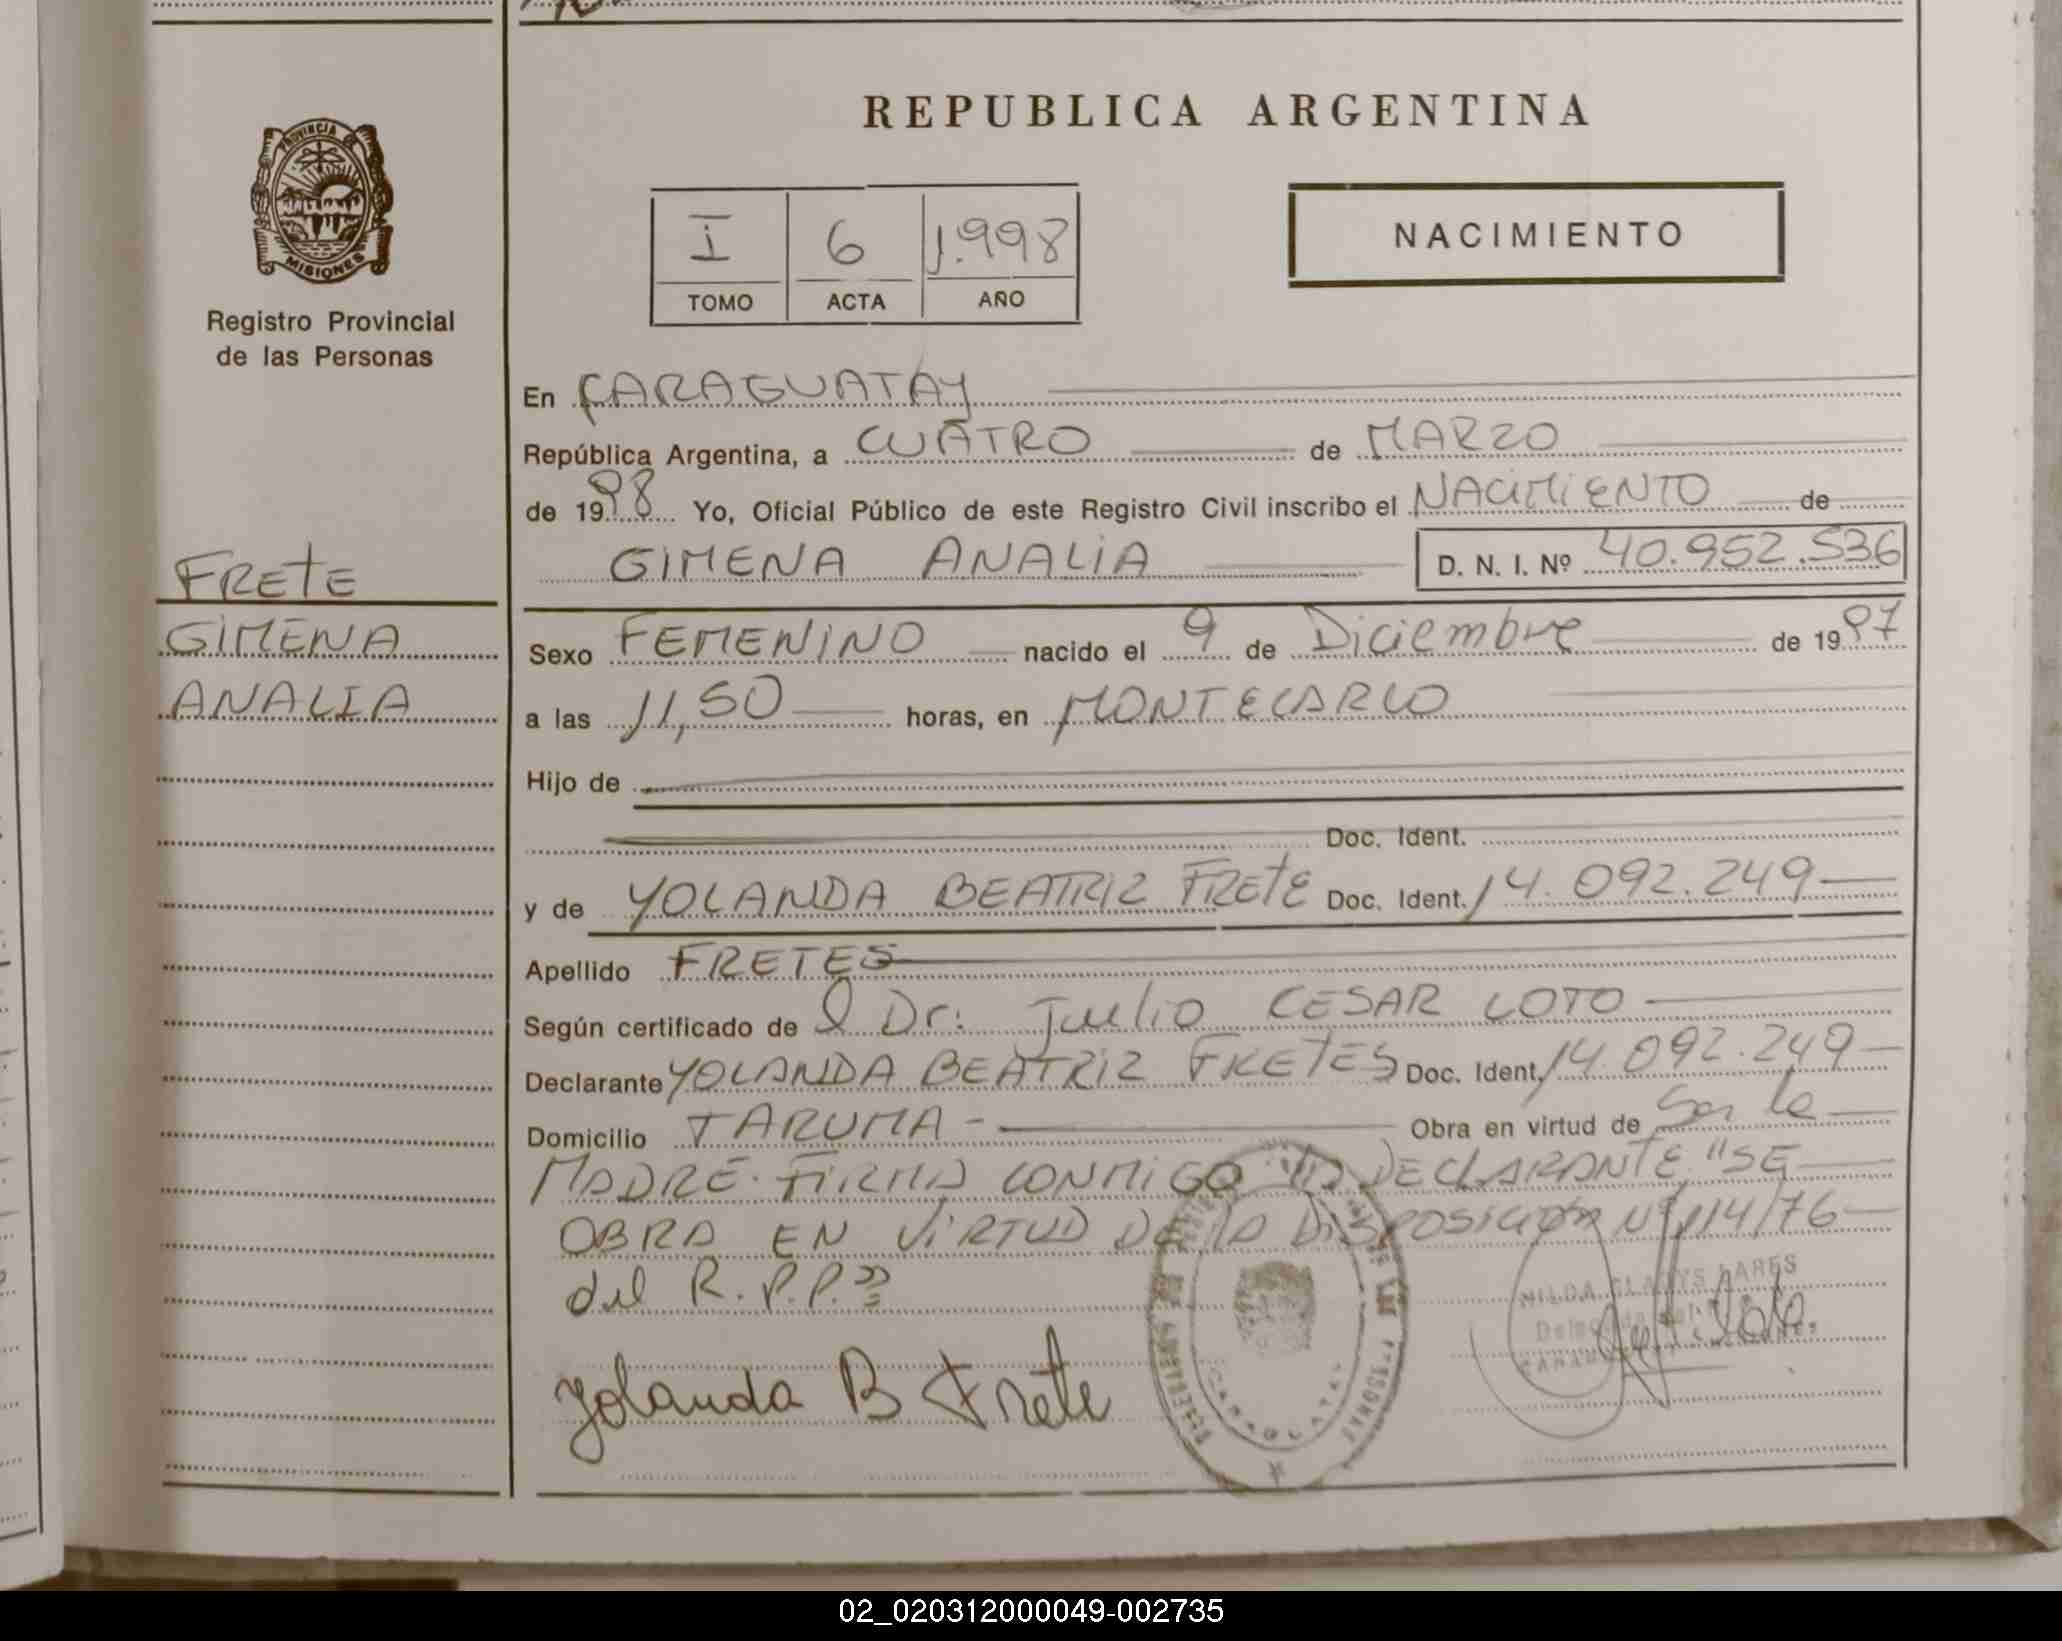 REPUBLICA ARGENTINA
PROVINCIA
MISIONES
Registro Provincial
de las Personas
I 6 1.998
TOMO ACTA AÑO
NACIMIENTO
FRETE
GIMENA
ANALIA
En CARAGUATAY
República Argentina, a CUATRO de MARZO
de 1998 Yo, Oficial Público de este Registro Civil inscribo el NACIMIENTO de
GIMENA ANALIA D. N. I. Nº 40.952.536
Sexo FEMENINO nacido el 9 de Diciembre de 1997
a las 11,50 horas, en MONTECARLO
Hijo de
Doc. Ident.
y de YOLANDA BEATRIZ FRETE Doc. Ident. 14.092.249
Apellido FRETES
Según certificado de l Dr: Julio CESAR LOTO
Declarante YOLANDA BEATRIZ FRETES Doc. Ident. 14.092.249
Domicilio TARUMA - Obra en virtud de Ser la
MADRE. FIRMA CONMIGO LA DECLARANTE "SE
OBRA EN VIRTUD DE LA DISPOSICIÓN Nº 114/76
del R.P.P."
Yolanda B Frete
CARAGUATAY
HILDA GLADYS LARES
02_020312000049-002735